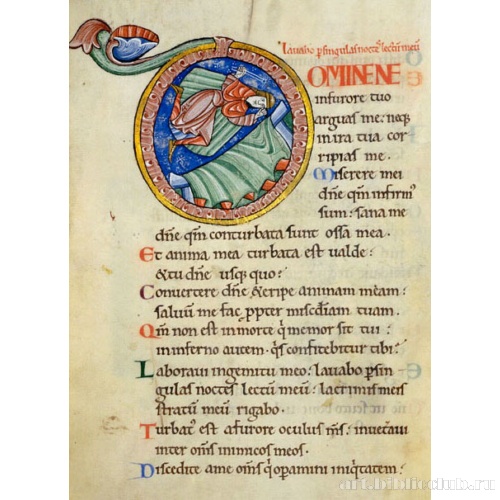 lavabo p singulas nocteˢ lectum meū
OMINE NE
in furore tuo
arguas me: neq;
in ira tua cor
ripias me.
Miserere mei
dn̄e qm̄ infirm'
sum: sana me
dn̄e qm̄ conturbata sunt ossa mea.
Et anima mea turbata est valde:
& tu dn̄e usq; quo?
Convertere dn̄e & eripe animam meam:
salvum me fac ppter misc̄diam tuam.
Qm̄ non est in morte q̇ memor sit tui:
in inferno autem. q̇s confitebitur tibi?
Laboravi in gemitu meo: lavabo p sin
gulas noctes lectū meū: lacrimis meis
stratū meū rigabo.
Turbat' est a furore oculus m̄s: inveteravi
inter om̄s inimicos meos.
Discedite a me om̄s q̇ opamini iniq̇tatem:
art.biblioclub.ru